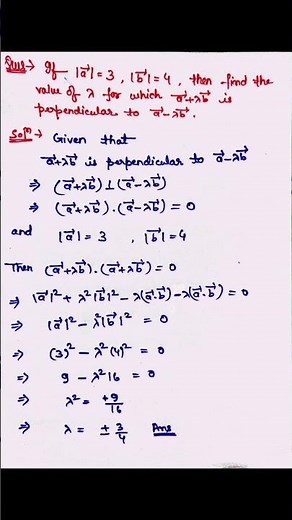 Ques→ If |a⃗| = 3, |b⃗| = 4, then find the
value of λ for which a⃗+λb⃗ is
perpendicular to a⃗-λb⃗.
Solⁿ→ Given that
a⃗+λb⃗ is perpendicular to a⃗-λb⃗
⇒ (a⃗+λb⃗) ⊥ (a⃗-λb⃗)
⇒ (a⃗+λb⃗) . (a⃗-λb⃗) = 0
and |a⃗| = 3 , |b⃗| = 4
Then (a⃗+λb⃗) . (a⃗+λb⃗) = 0
⇒ |a⃗|² + λ²|b⃗|² - λ(a⃗.b⃗) - λ(a⃗.b⃗) = 0
⇒ |a⃗|² - λ²|b⃗|² = 0
⇒ (3)² - λ²(4)² = 0
⇒ 9 - λ²16 = 0
⇒ λ² = +9/16
⇒ λ = ± 3/4 Ans